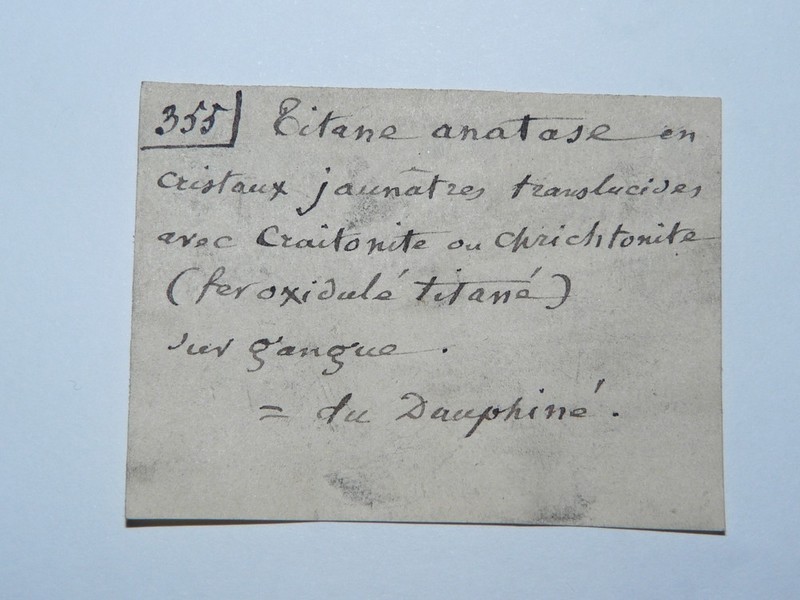 355 Titane anatase en
cristaux jaunâtres translucides
avec Craitonite ou Chrichtonite
(fer oxidulé titané)
sur gangue.
= du Dauphiné.